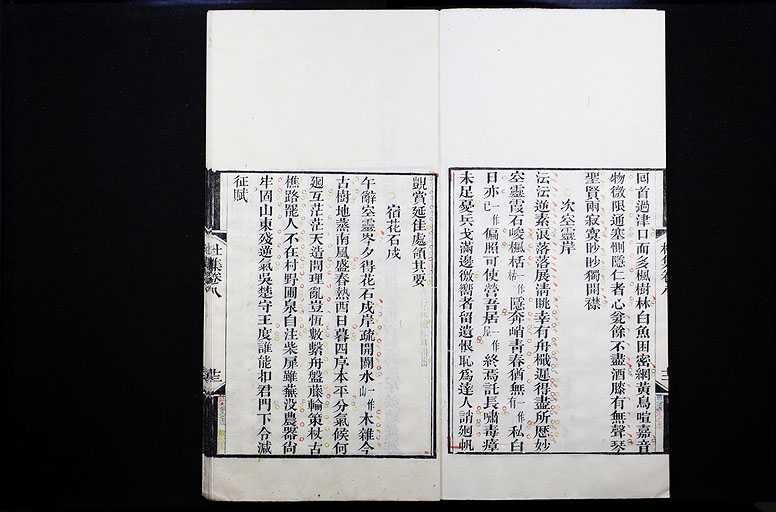 回首過津口而多楓樹林白魚困密網黃鳥喧嘉音
物微限通塞惻隱仁者心瓮餘不盡酒膝有無聲琴
聖賢兩寂寞眇眇獨開襟
次空靈岸
沄沄逆素浪落落展清眺幸有舟楫遲得盡所歷妙
空靈霞石峻楓栝一作枯隱奔峭青春猶無一作有私白
日亦一作已偏照可使營吾居一作屋終焉託長嘯毒瘴
未足憂兵戈滿邊徼嚮者留遺恨恥為達人誚迴帆
覬賞延佳處領其要
宿花石戍
午辭空靈岑夕得花石戍岸疏開闢水一作山木雜今
古樹地蒸南風盛春熱西日暮四序本平分氣候何
迴互茫茫天造間理亂豈恆數繫舟盤藤輪策杖古
樵路罷人不在村野圃泉自注柴扉雖蕪沒農器尚
牢固山東殘逆氣吳楚守王度誰能扣君門下令減
征賦
杜集卷八